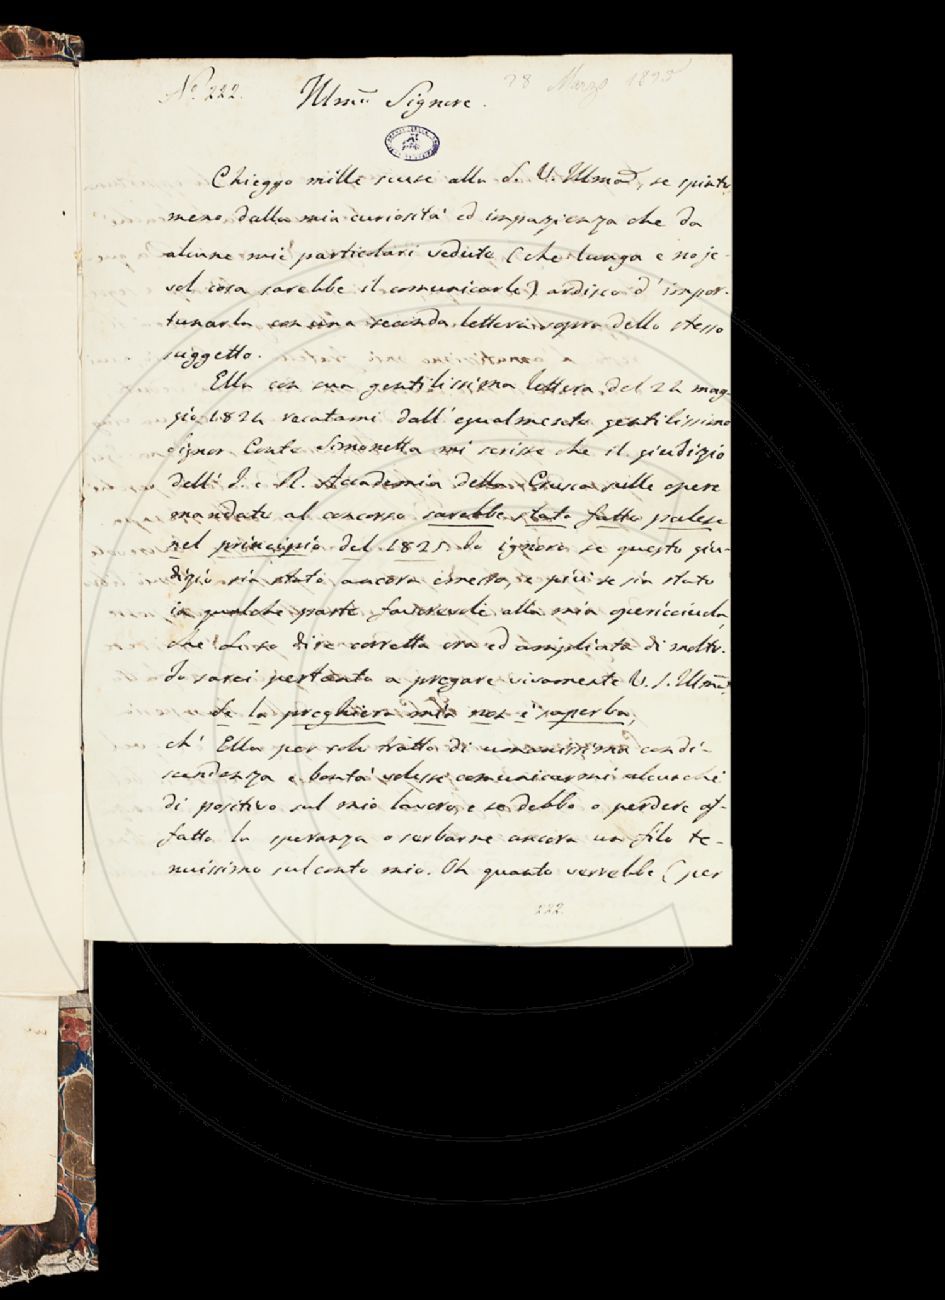 N.° 222.
28 Marzo 1825
Illmo Signore.
Chieggo mille scuse alla S. V. Illma, se spinto
meno dalla mia curiosità ed impazienza che da
alcune mie particolari vedute (che lunga e noje-
vol cosa sarebbe il comunicarle) ardisco d'impor-
tunarla con una seconda lettera sopra dello stesso
suggetto.
Ella con sua gentilissima lettera del 22 mag-
gio 1824 recatami dall'egualmente gentilissimo
Signor Conte Simonetta mi scrisse che il giudizio
dell'I. e R. Accademia della Crusca sulle opere
mandate al concorso sarebbe stato fatto palese
nel principio del 1825. Io ignoro se questo giu-
dizio sia stato ancora emesso, e più se sia stato
in qualche parte favorevole alla mia opericciuola
che oso dire corretta ora ed ampliata di molto.
Io sarei pertanto a pregare vivamente V. S. Illma,
Se la preghiera mia non è superba,
ch'Ella per solo tratto di umanissima condi-
scendenza e bontà volesse comunicarmi alcunchè
di positivo sul mio lavoro, e se debbo o perdere af-
fatto la speranza o serbarne ancora un filo te-
nuissimo sul conto mio. Oh quanto verrebbe (per
222.